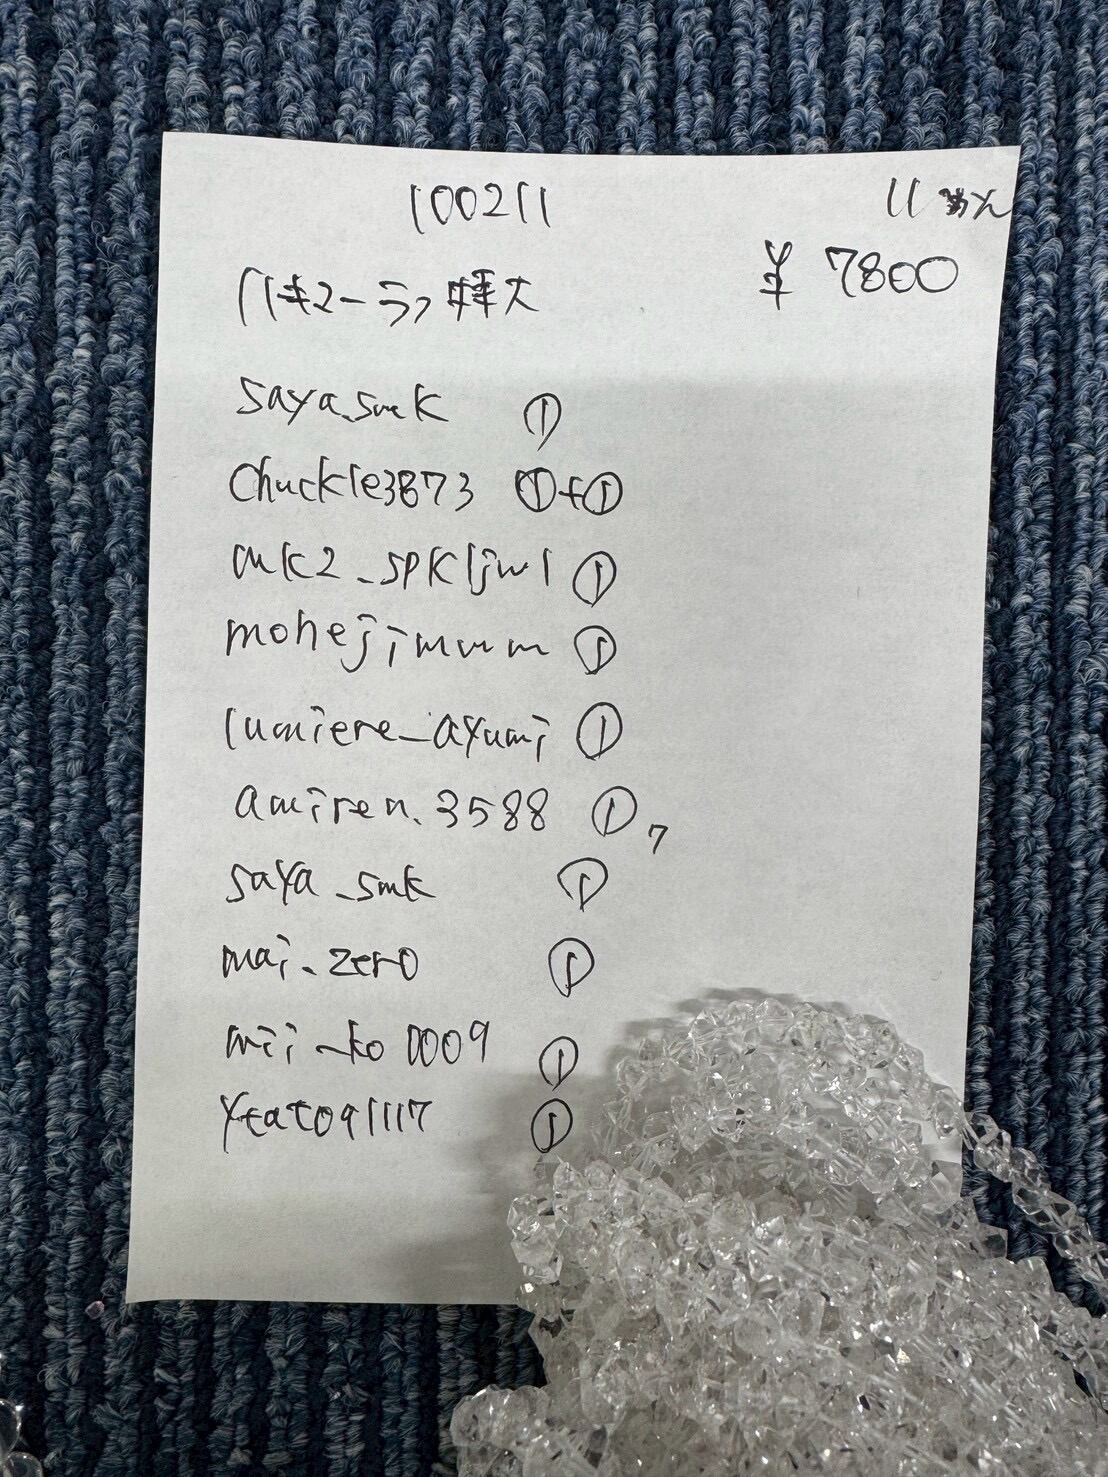 100211
11
¥ 7800
saya_smk ①
Chuckle3873 ①+①
mk2_spkljwl ①
mohejimum ①
lumiere_ayumi ①
amiren.3588 ①
7
saya_smk ①
mai_zero ①
mii_ko0009 ①
①